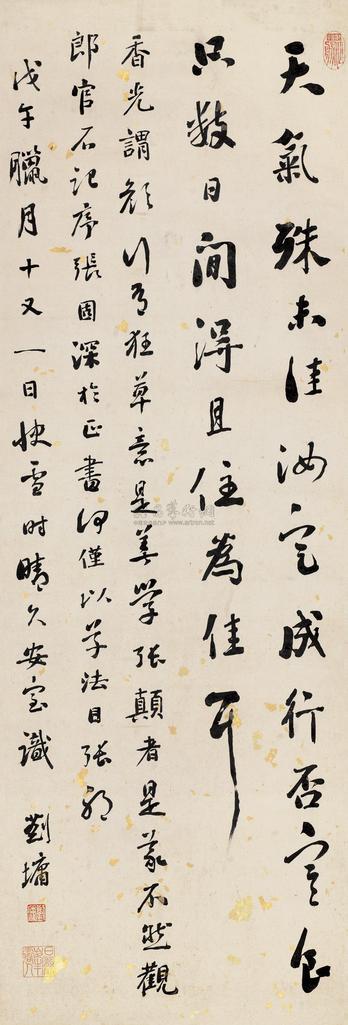 天氣殊未佳汝定成行否寒食
只數日間得且住為佳耳
香光謂顏行有狂草意是善學張顛者是蒙不然觀
郎官石記序張固深於正書何僅以草法目張耶
戊午臘月十又一日快雪時晴久安室識 劉墉
www.artron.net